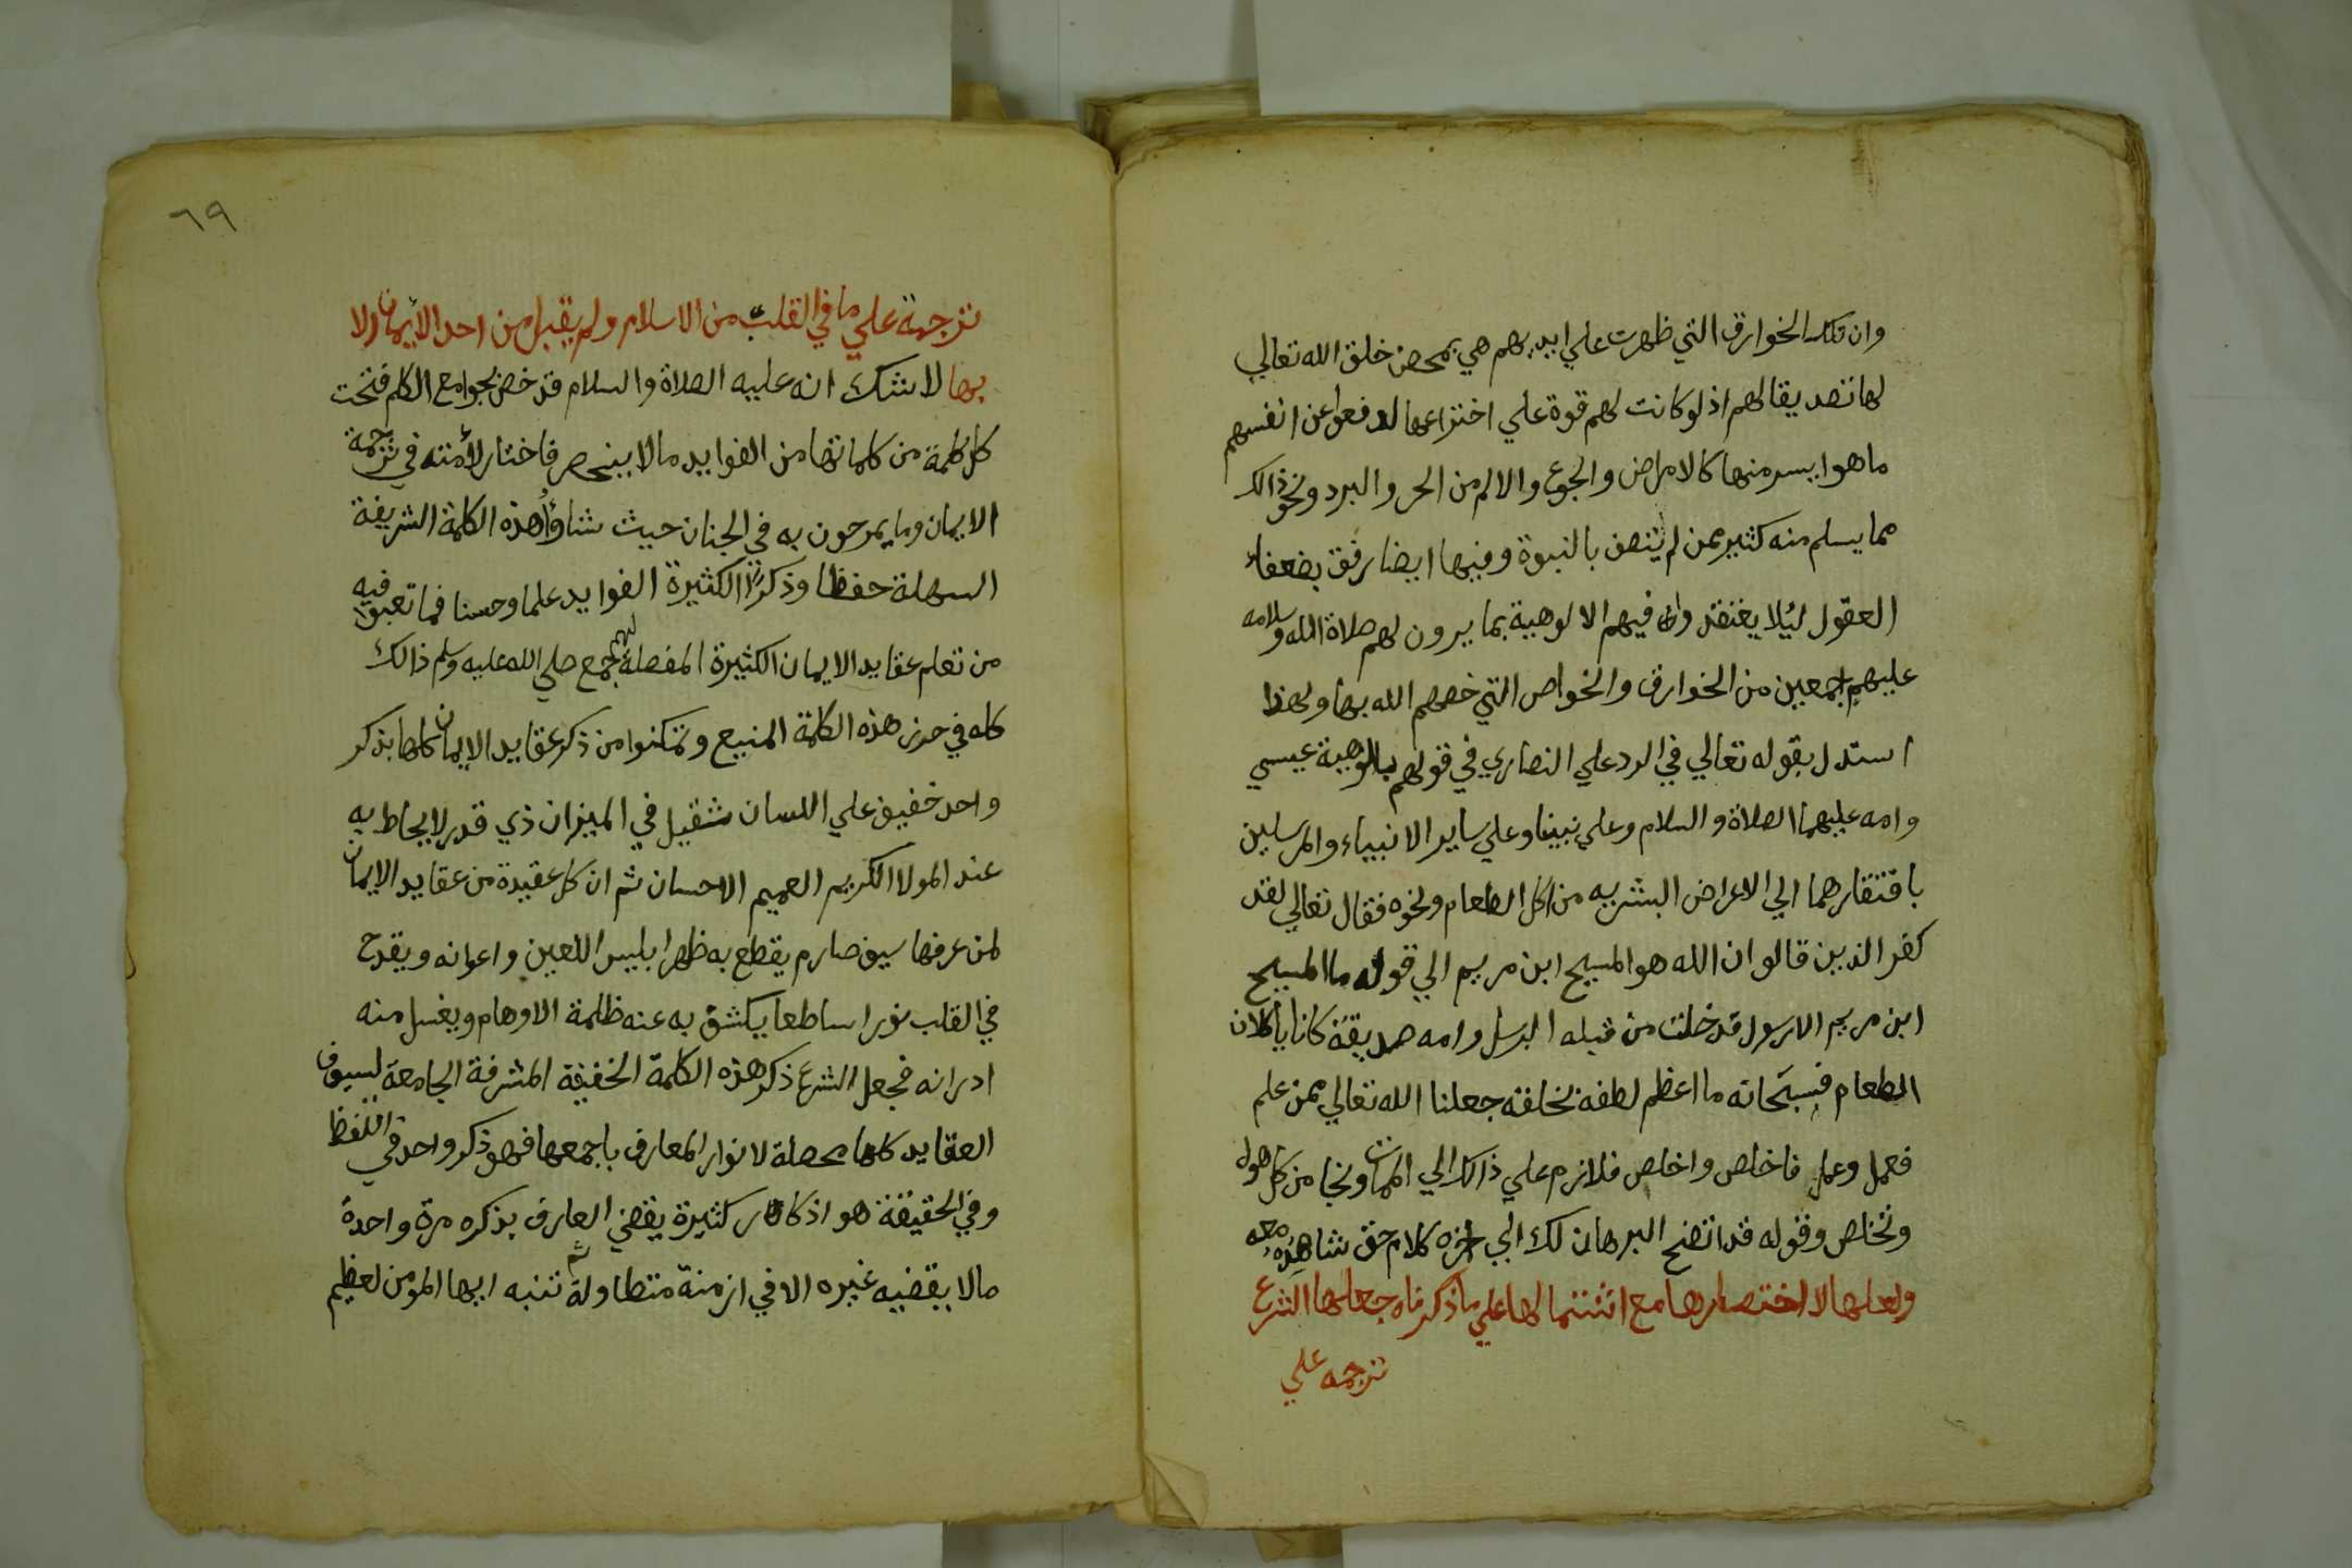 وان تلك الخوارق التي ظهرت علي ايديهم هي بمحض خلق الله تعالي
لها تصديقا لهم اذ لو كانت لهم قوة علي اختراعها لدفعوا عن انفسهم
ما هو ايسر منها كالامراض والجوع والالم من الحر والبرد ونحو ذالك
مما يسلم منه كثير ممن لم يتصف بالنبوة وفيها ايضا رفق بضعفاء
العقول ليلا يعتقدوا فيهم الالوهية بما يرون لهم صلاة الله وسلامه
عليهم اجمعين من الخوارق والخواص التي خصهم الله بها ولهذا
استدل بقوله تعالي في الرد علي النصاري في قولهم بالوهية عيسي
وامه عليهما الصلاة والسلام وعلي نبينا وعلي ساير الانبياء والمرسلين
بافتقارهما الي الاعراض البشريه من اكل الطعام ونحوه فقال تعالي لقد
كفر الذين قالو ان الله هو المسيح ابن مريم الي قوله ما المسيح
ابن مريم الا رسول قد خلت من قبله الرسل وامه صديقة كانا ياكلان
الطعام فسبحانه ما اعظم لطفه بخلقه جعلنا الله تعالي ممن علم
فعمل وعمل فاخلص واخلص فلازم علي ذالك الي الممات ونجا من كل هول
وتخلص وقوله قد اتضح البرهان لك الي اخره كلام حق شاهده معه
ولعلها لاختصارها مع اشتمالها علي ما ذكرناه جعلها الشرع
ترجمه علي
٦٩
ترجمة علي ما في القلب من الاسلام ولم يقبل من احد الايمان الا
بها لا شك انه عليه الصلاة والسلام قد خص بجوامع الكلم فتحت
كل كلمة من كلماتها من الفوايد ما لا ينحصر فاختار لأمته في ترجمة
الايمان وما يمرحون به في الجنان حيث شاؤا هذه الكلمة الشريفة
السهلة حفظا وذكرا الكثيرة الفوايد علما وحسنا فما تعبوا فيه
من تعلم عقايد الايمان الكثيرة المفصلة جمع لهم صلي الله عليه وسلم ذالك
كله في حرز هذه الكلمة المنيع وتمكنوا من ذكر عقايد الايمان كلها بذكر
واحد خفيف علي اللسان ثقيل في الميزان ذي قدر لا يحاط به
عند المولا الكريم العميم الاحسان ثم ان كل عقيدة من عقايد الايمان
لمن عرفها سيف صارم يقطع به ظهر ابليس اللعين واعوانه ويقدح
في القلب نورا ساطعا يكشف به عنه ظلمة الاوهام ويغسل منه
ادرانه فجعل الشرع ذكر هذه الكلمة الخفيفة المشرفة الجامعة لسيوف
العقايد كلها محصلة لانوار المعارف باجمعها فهو ذكر واحد في اللفظ
وفي الحقيقة هو اذكار كثيرة يقضي العارف بذكره مرة واحدة
مالا يقضيه غيره الا في ازمنة متطاولة ثم تنبه ايها المومن لعظيم